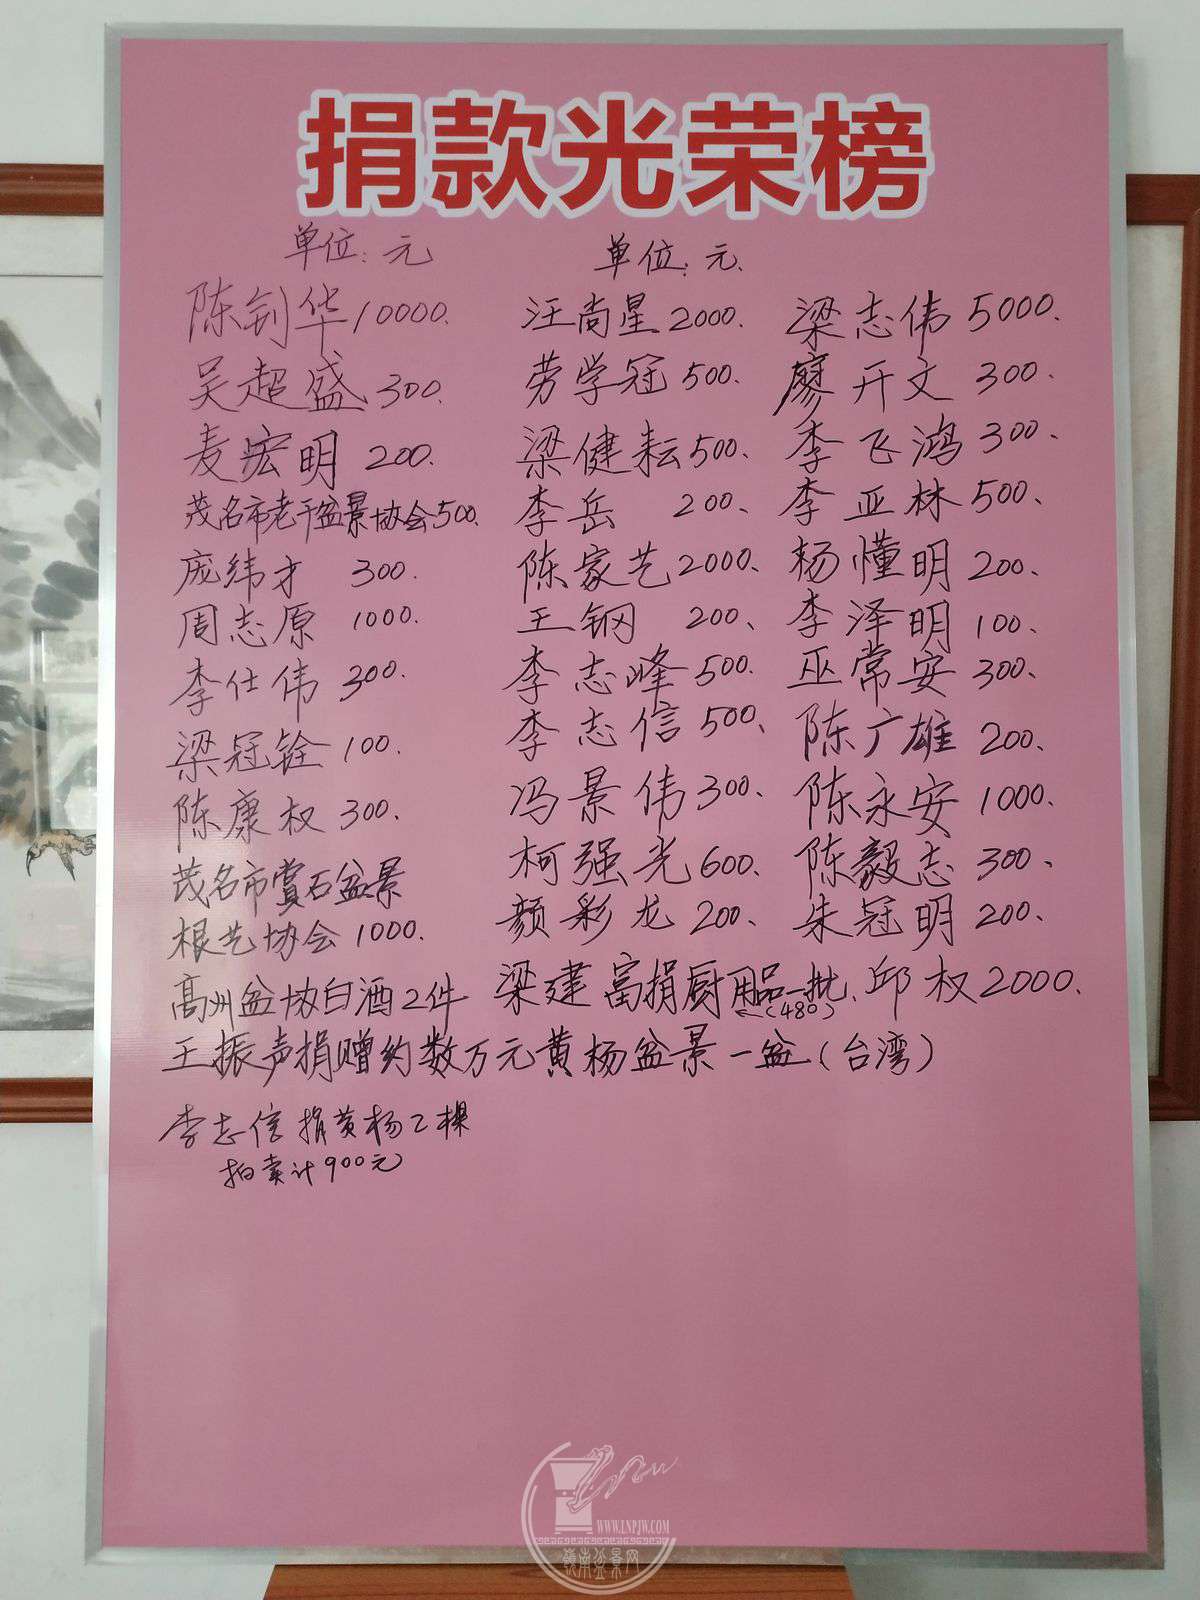 捐款光荣榜
单位:元 单位:元.
陈钊华 10000. 汪尚星 2000. 梁志伟 5000.
吴超盛 300. 劳学冠 500. 廖开文 300.
麦宏明 200. 梁健耘 500. 李飞鸿 300.
茂名市老干盆景协会 500. 李岳 200. 李亚林 500.
庞纬才 300. 陈家艺 2000. 杨懂明 200.
周志原 1000. 王钢 200. 李泽明 100.
李仕伟 300. 李志峰 500. 巫常安 300.
梁冠铨 100. 李志信 500. 陈广雄 200.
陈康权 300. 冯景伟 300. 陈永安 1000.
茂名市赏石盆景 柯强光 600. 陈毅志 300.
根艺协会 1000. 颜彩龙 200. 朱冠明 200.
高州盆协白酒2件 梁建富捐厨用品一批. 邱权 2000.
(480)
王振声捐赠约数万元黄杨盆景一盆(台湾)
李志信捐黄杨2棵
拍卖计900元
WWW.LNPJW.COM
岭南盆景网